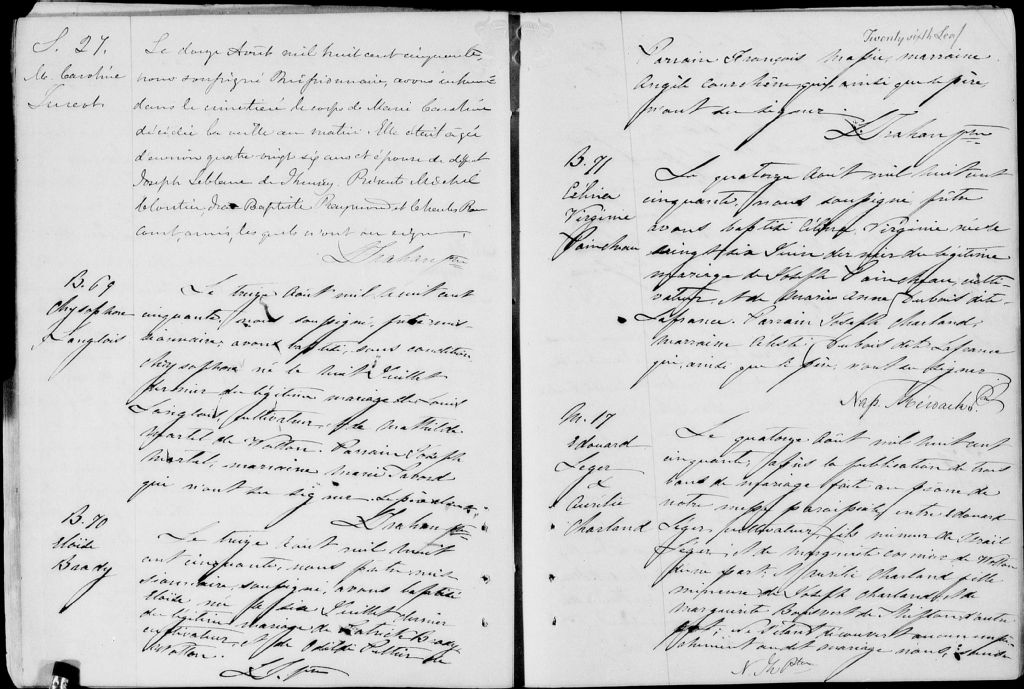 S. 27.
M. Caroline
Turcot
Le douze Août mil huit cent cinquante,
nous soussigné Missionnaire, avons inhumé
dans le cimetière le corps de Marie Caroline
décédée la veille au matin. Elle était agée
d'environ quatre-vingt six ans et épouse de défunt
Joseph Leblanc de. Présents Michel
Cloutier, Jean Baptiste Raymond et Charles
, amis, les quels n'ont su signer.
L. Trahan ptre
B. 69
Chrysophone
Langlois
Le treize Août mil huit cent
cinquante, nous soussigné, prêtre mis-
sionnaire, avons baptisé, sous condition,
Chrysophone né le huit Juillet
dernier du légitime mariage de Louis
Langlois, cultivateur, & de Mathilde
Martel de Wotton. Parrain Joseph
Martel, marraine Marie
qui n'ont su signer
L. Trahan ptre
B. 70
Eloïde
Brady
Le treize Août mil huit
cent cinquante, nous prêtre mis-
sionnaire, soussigné, avons baptisé
Eloïde, née le six Juillet dernier
du légitime mariage de Patrick Brady
cultivateur, & de Odille Pelletier de
Wotton.
L. T. ptre
Twenty sixth Leaf
Parrain François, marraine
Angèle, qui, ainsi que le père,
n'ont su signer
L. Trahan ptre
B. 71
Celina
Virginie
Painchau
Le quatorze Août mil huit cent
cinquante, nous soussigné prêtre
avons baptisé Célina Virginie née le
vingt six Juin dernier du légitime
mariage de Joseph Painchau, culti-
vateur, & de Marie Anne Dubois dit
Lafrance. Parrain Joseph Charland,
marraine Dubois dit Lafrance
qui, ainsi que le père, n'ont su signer
Nap.
M. 17
Edouard
Leger
&
Aurélie
Charland
Le quatorze Août mil huit cent
cinquante, après la publication de trois
bans de mariage faite au prône de
notre messe paroissiale, entre Edouard
Leger, cultivateur, fils mineur de
Leger, & de Marguerite de Wotton
d'une part; & Aurélie Charland fille
mineure de Joseph Charland & de
Marguerite Boisvert de d'autre
part; ne s'étant découvert aucun empê-
chement au dit mariage nous,